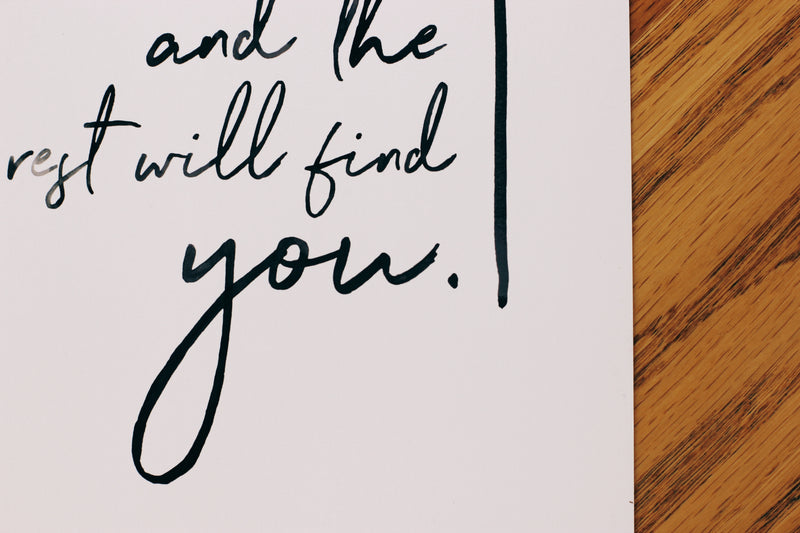 and the
rest will find
you.